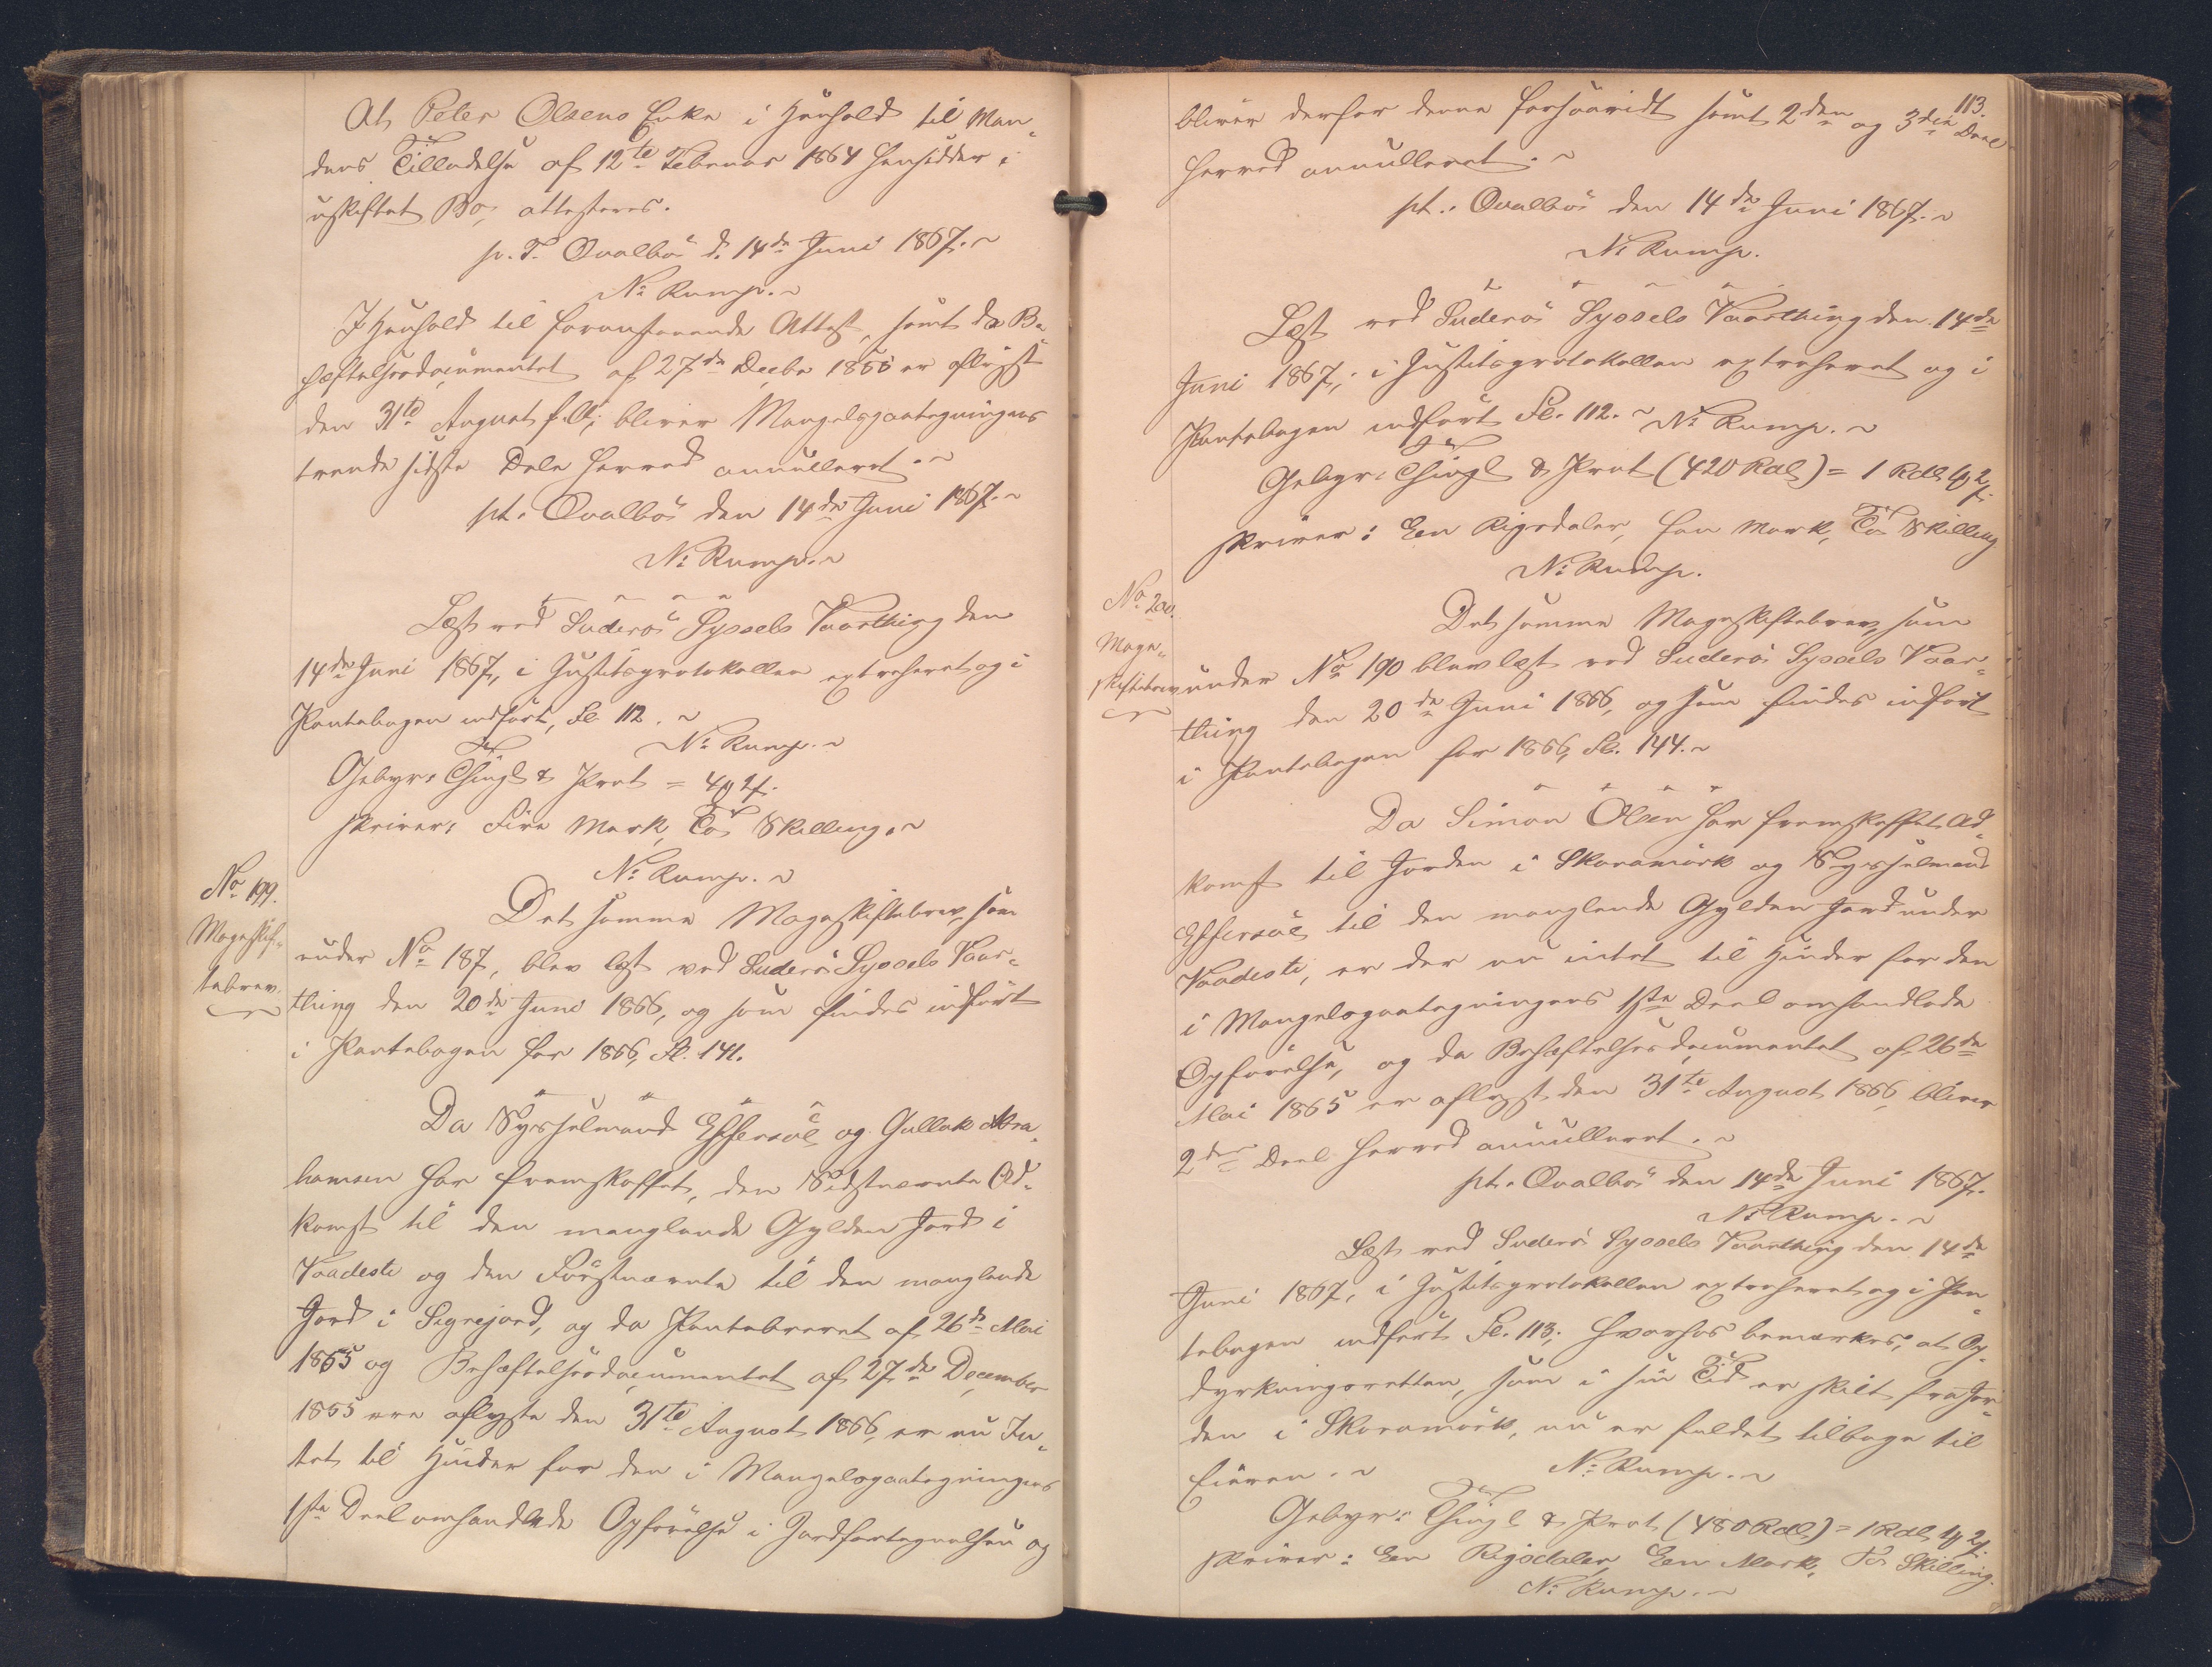 At Peter Olsens Enke i Henhold til Man-
dens Tilladelse af 12te Februar 1864 hensidder i
uskiftet Bo, attesteres.
p. T. Qvalbö d. 14de Juni 1867.
N: Rump.
I Henhold til foranstaaende Attest, samt da Be-
hæftelsesdocumentet af 27de Decbr 1855 er aflyst
den 31te August f. A., bliver Mangelspaategningens
trende sidste Dele herved annulleret.
pt. Qvalbö den 14de Juni 1867.
N: Rump.
Læst ved Suderö Syssels Vaarthing den
14de Juni 1867, i Justitsprotokollen extraheret og i
Pantebogen indfört, Fl. 112.
N: Rump.
Gebyr: Thingl & Prot = 4 Mk 2 s.
skriver: Fire Mark, To Skilling.
N: Rump.
No 199.
Mageskif-
tebrev.
Det samme Mageskiftebrev, som
under No 187, blev læst ved Suderö Syssels Vaar-
thing den 20de Juni 1866, og som findes indfört
i Pantebogen for 1866, Fl. 141.
Da Sysselmand Effersöe og Gullak Abra-
hamsen har fremskaffet, den Sidstnævnte Ad-
komst til den manglende Gylden Jord i
Vaadesti og den Förstnævnte til den manglende
Jord i Signejord, og da Pantebrevet af 26de Mai
1865 og Behæftelsesdocumentet af 27de December
1855 ere aflyste den 31te August 1866, er nu In-
tet til Hinder for den i Mangelspaategningens
1ste Deel omhandlede Opförelse i Jordfortegnelsen og
113.
bliver derfor denne forsaavidt samt 2den og 3die Deel
herved annulleret.
pt. Qvalbö den 14de Juni 1867.
N: Rump.
Læst ved Suderö Syssels Vaarthing den 14de
Juni 1867, i Justitsprotokollen extraheret og i
Pantebogen indfört Fl. 112. N: Rump.
Gebyr: Thingl & Prot (420 Rdl) = 1 Rdl 1 Mk 2 s.
skriver: Een Rigsdaler, Een Mark, To Skilling
N: Rump.
No 200.
Mage-
skiftebrev
Det samme Mageskiftebrev, som
under No 190 blev læst ved Suderö Syssels Vaar-
thing den 20de Juni 1866, og som findes infört
i Pantebogen for 1866, Fl. 144.
Da Simon Olsen har fremskaffet Ad-
komst til Jorden i Skoramörk og Sysselmand
Effersöe til den manglende Gylden Jord under
Vaadesti, er der nu intet til Hinder for den
i Mangelspaategningens 1ste Deel omhandlede
Opförelse, og da Behæftelsesdocumentet af 26de
Mai 1865 er aflyst den 31te August 1866, bliver
2den Deel herved annulleret.
pt. Qvalbö den 14de Juni 1867.
N: Rump.
Læst ved Suderö Syssels Vaarthing den 14de
Juni 1867, i Justitsprotokollen extraheret og i Pan-
tebogen indfört Fl. 113; hvorhos bemærkes, at Op-
dyrkningsretten, som i sin Tid er skilt fra Jor-
den i Skoramörk, nu er faldet tilbage til
Eieren.
N: Rump.
Gebyr: Thingl & Prot (480 Rdl) = 1 Rdl 1 Mk 2 s.
skriver: Een Rigsdaler, Een Mark, To Skilling.
N: Rump.